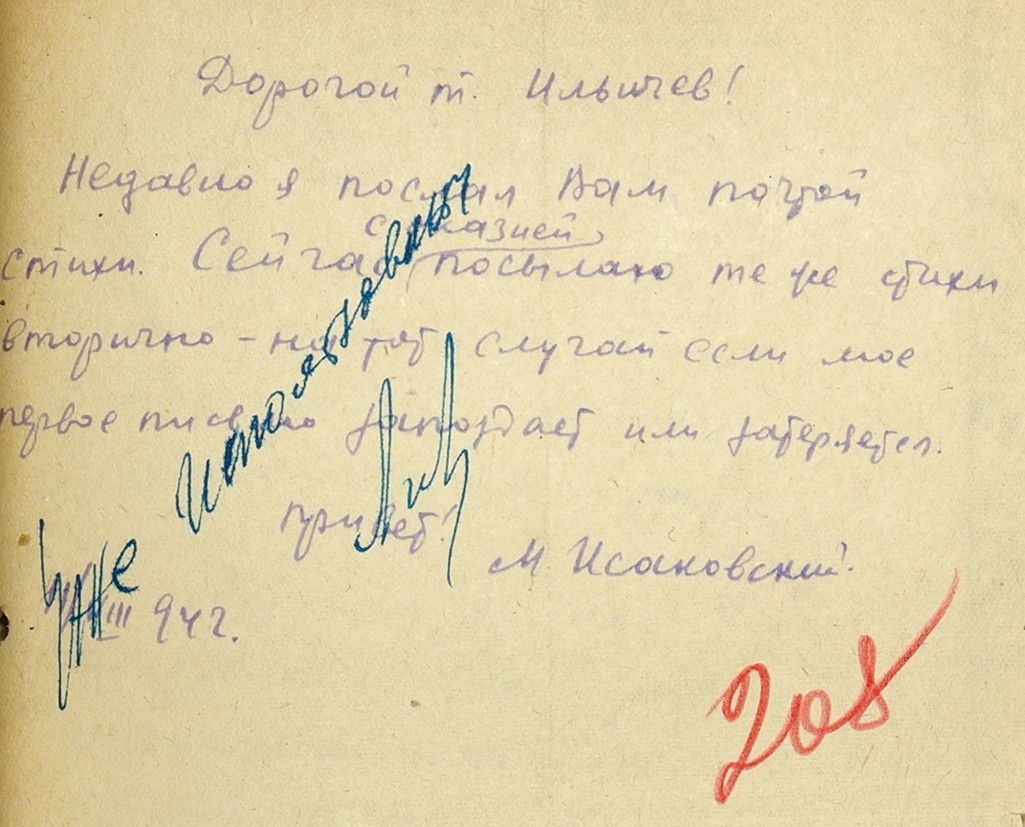 Дорогой т. Ильичев!
Недавно я послал Вам почтой
с оказией
стихи. Сейчас посылаю те же стихи
вторично - на тот случай если мое
первое письмо запоздает или затеряется.
Привет!
М. Исаковский.
III 94г.
Уже использованы
208